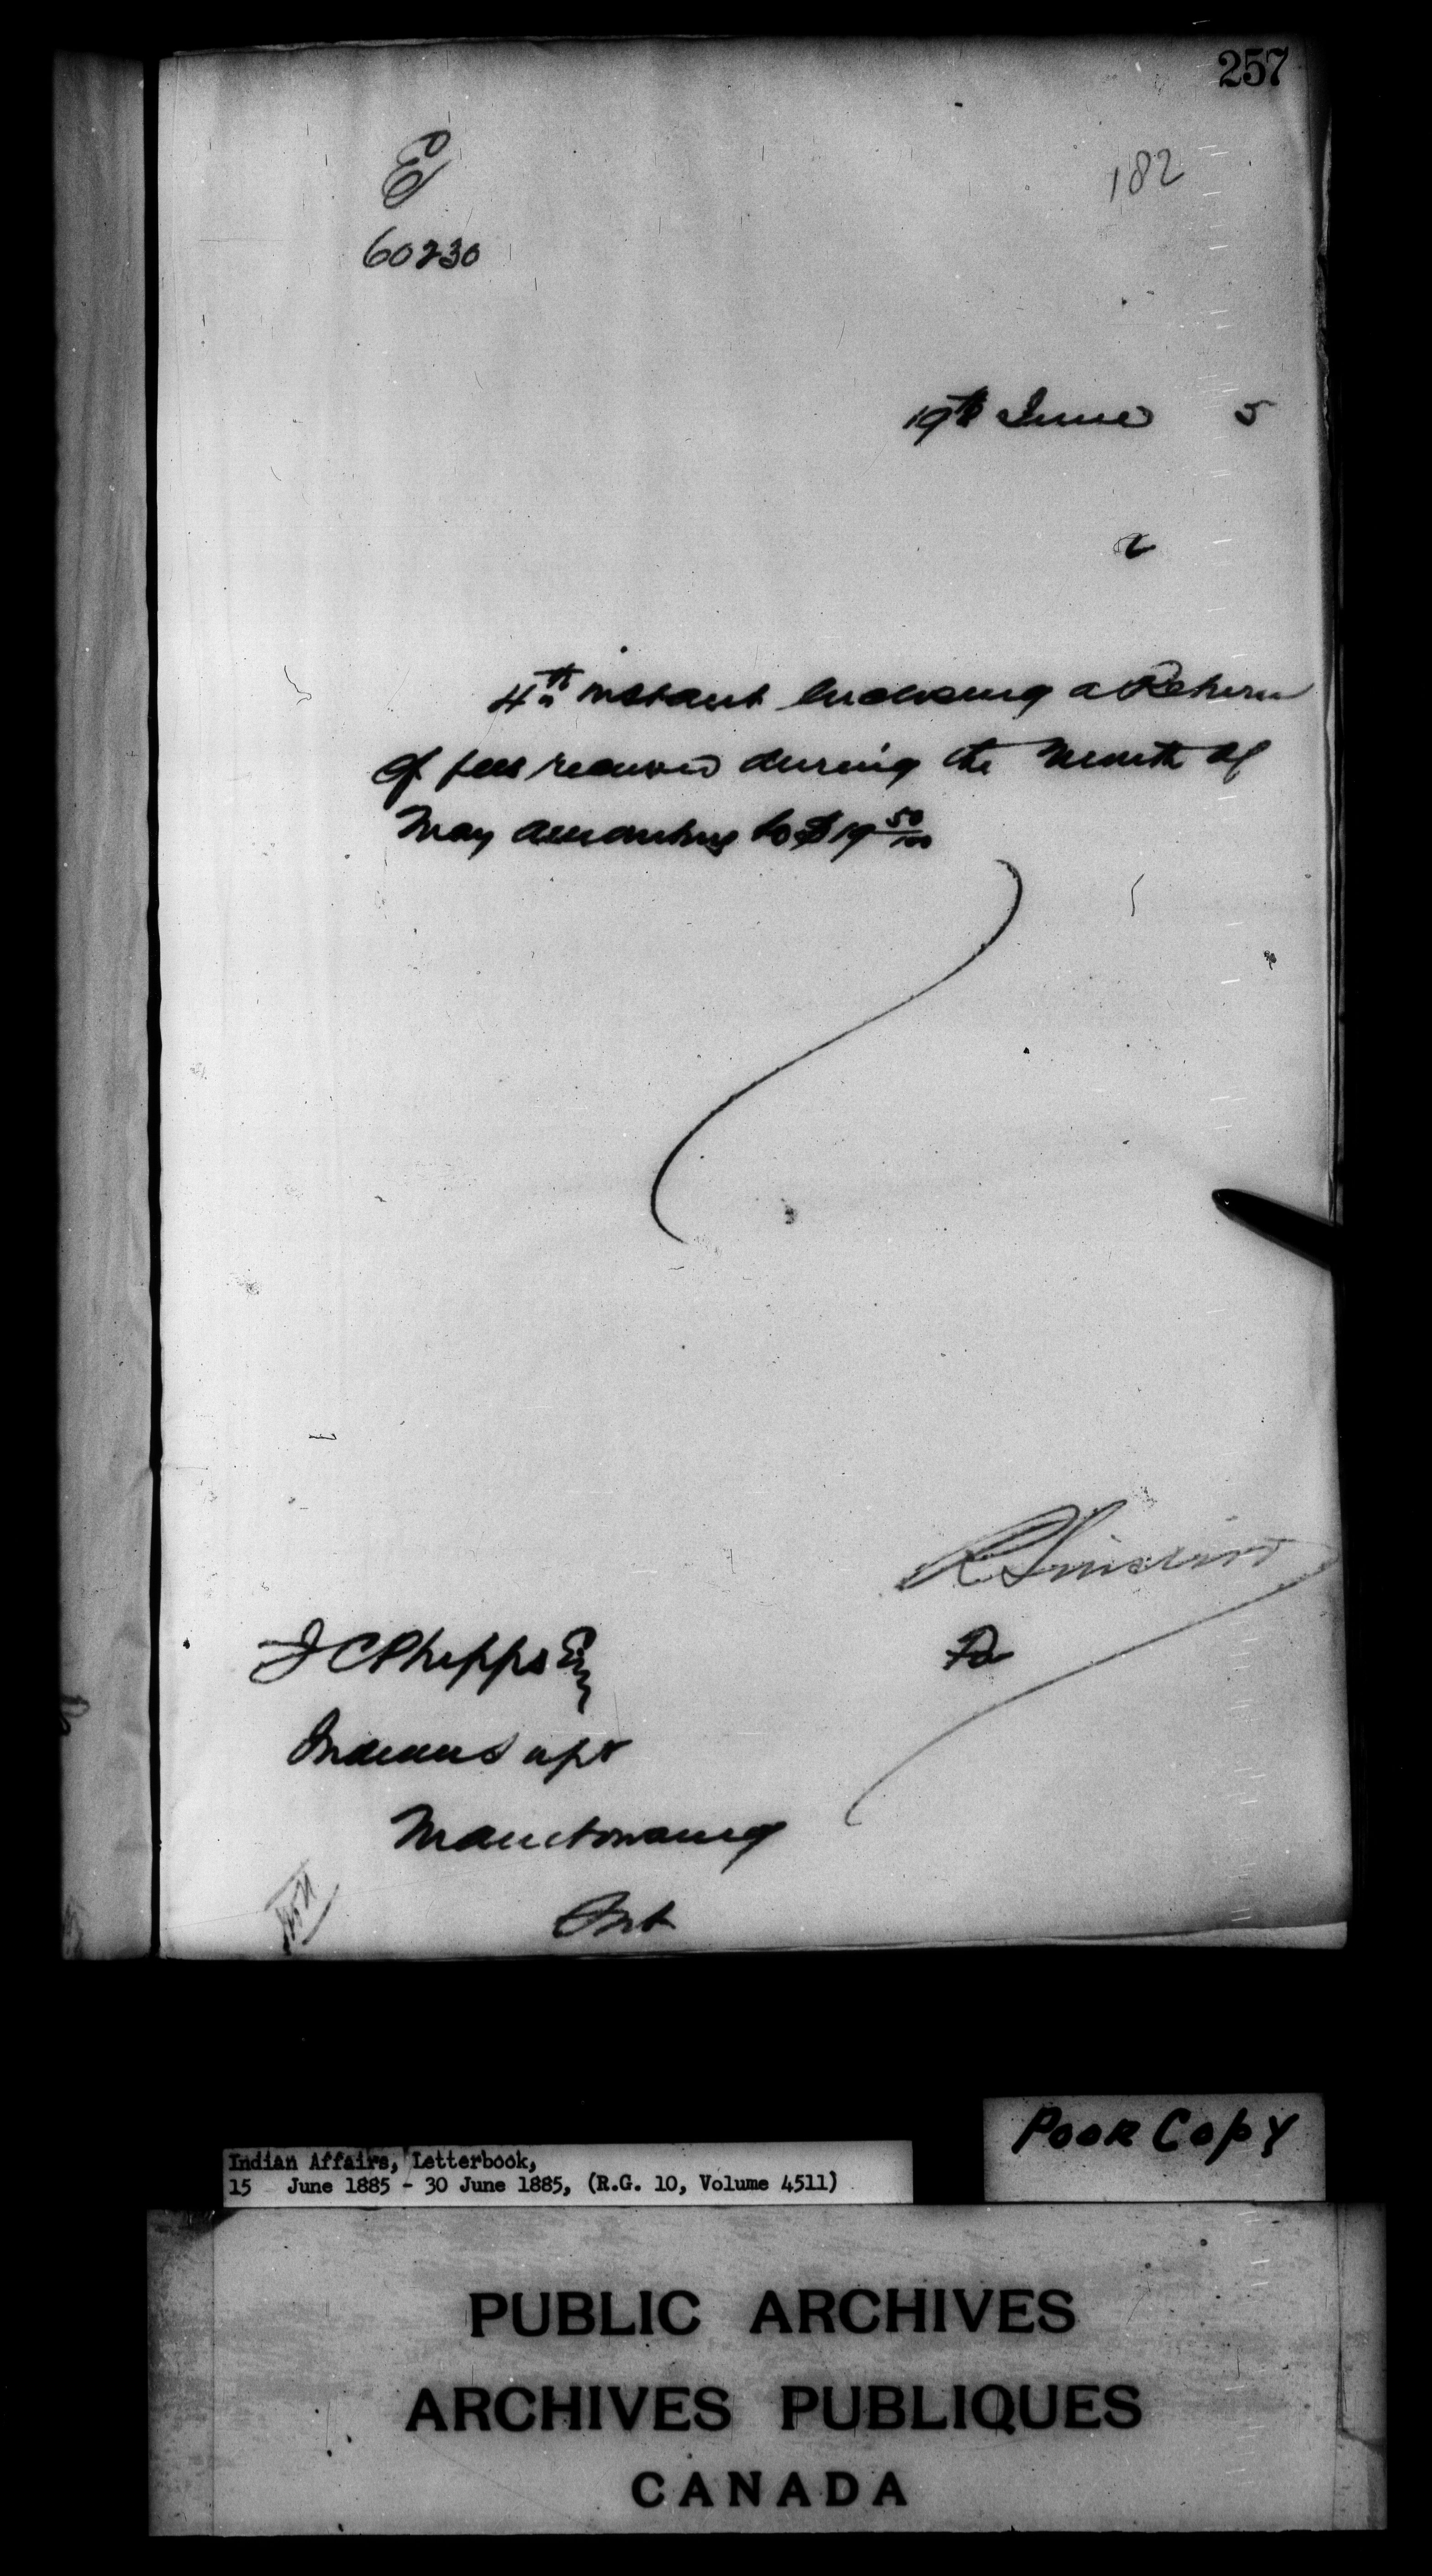 257
182
E
60230
19th June 5
4th instant enclosing a Return
of fees received during the month of
May amounting to $19 50/100
R Sinclair
J C Phipps Esq
Indian Supt
Manitowaning
Ont
Poor Copy
Indian Affairs, Letterbook,
15 June 1885 - 30 June 1885, (R.G. 10, Volume 4511)
PUBLIC ARCHIVES
ARCHIVES PUBLIQUES
CANADA